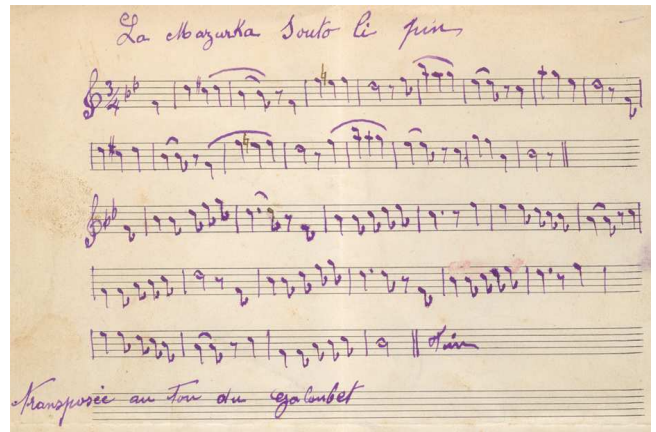 La Mazurka Souto li pin
3/4
Fin
Transposée au Ton du Galoubet